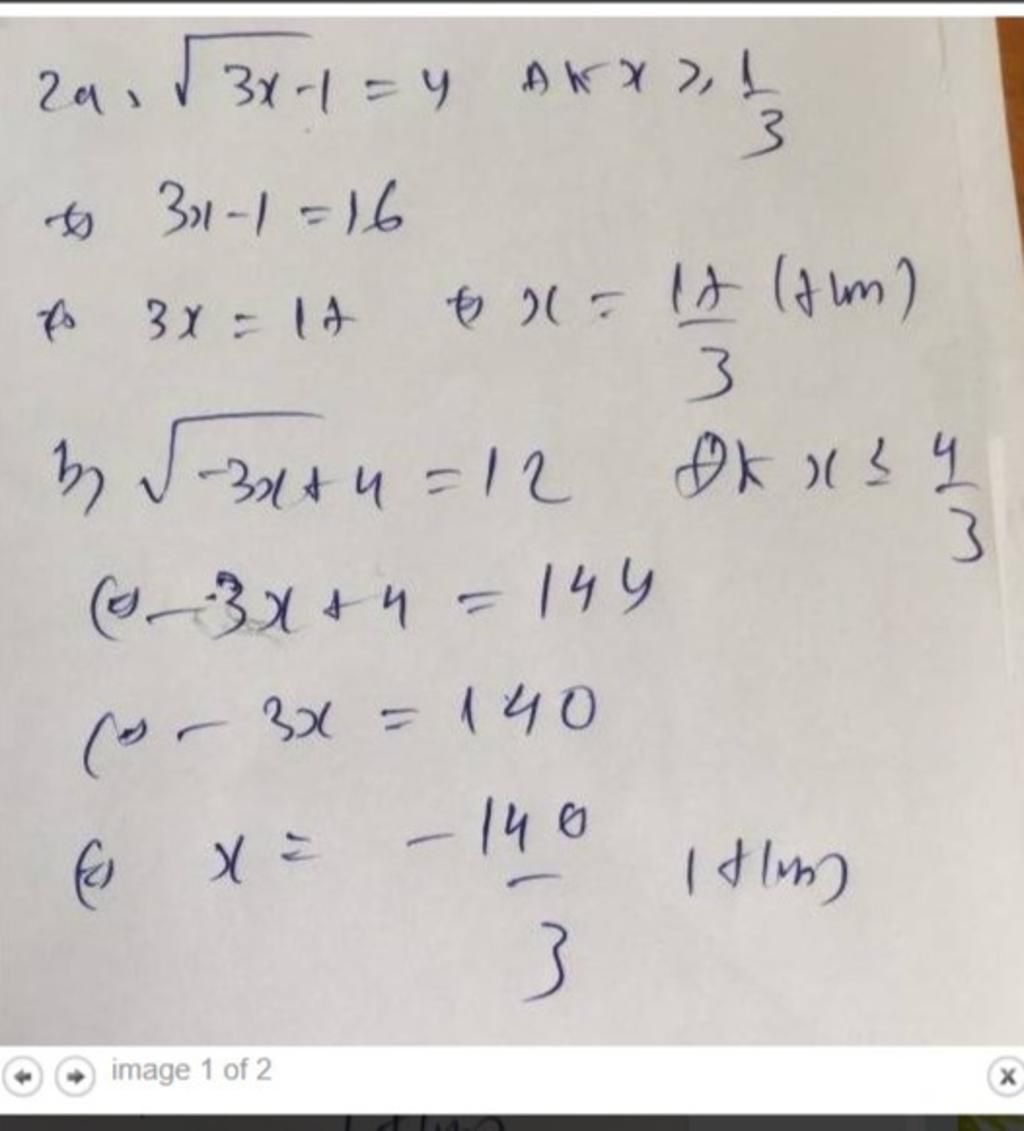 2a, √3x-1 = 4 ĐK x ≥ 1/3
⇔ 3x-1 = 16
⇔ 3x = 17 ⇔ x = 17/3 (t/m)
b) √-3x+4 = 12 ĐK x ≤ 4/3
⇔ -3x+4 = 144
⇔ -3x = 140
⇔ x = -140/3 (t/m)
image 1 of 2